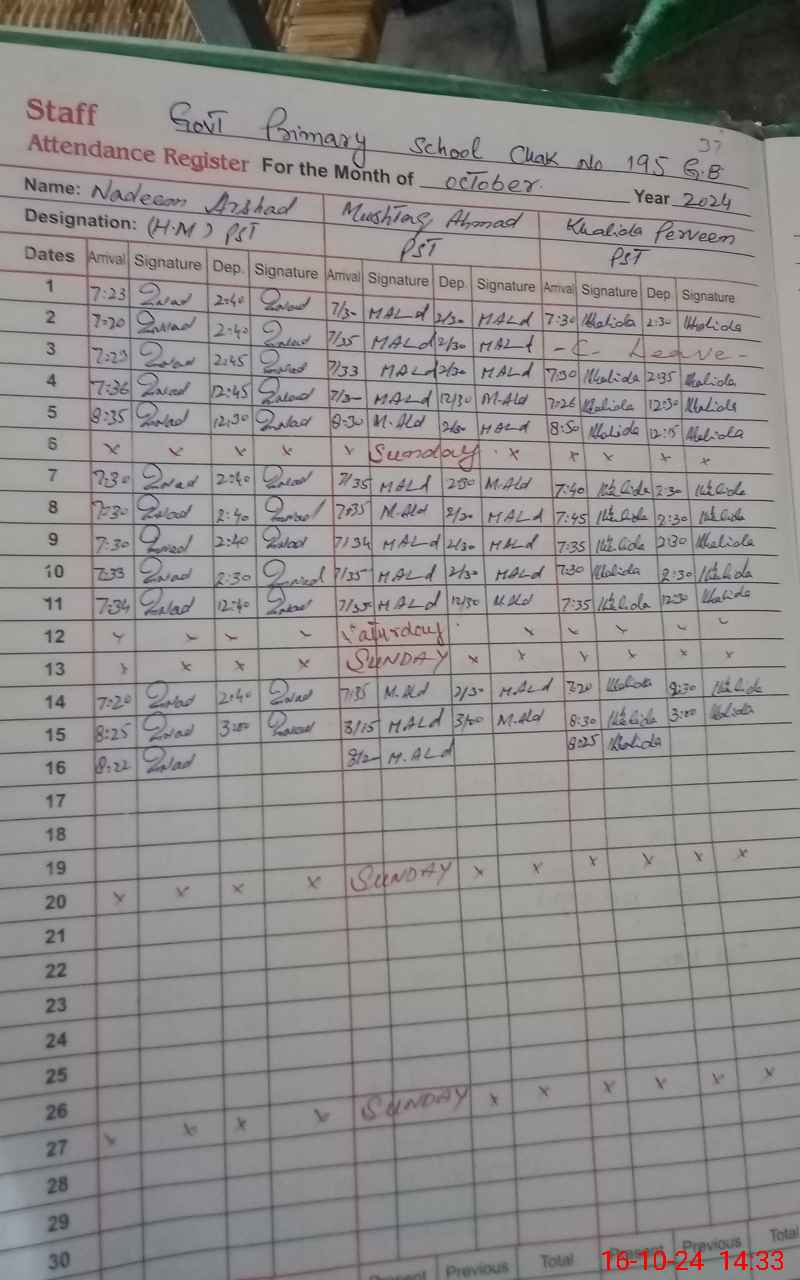 37
Staff Govt Primary School Chak No 195 G.B
Attendance Register For the Month of october. Year 2024
Name: Nadeem Arshad Mushtaq Ahmad Khalida Perveen
Designation: (H.M) PST PST PST
Dates Arrival Signature Dep. Signature Arrival Signature Dep. Signature Arrival Signature Dep Signature
1 7:23 2:40 7/30 MALd 2/30 MALd 7:30 Khalida 2:30 Khalida
2 7:20 2:40 7/35 MALd 2/30 MALd - C. Leave -
3 7:29 2:45 7/33 MALd 2/30 MALd 7:30 Khalida 2:35 Khalida
4 7:36 12:45 7/30 MALd 12/30 M.Ald 7:26 Khalida 12:30 Khalida
5 8:35 12:30 8:30 M.Ald MALd 8:50 Khalida 12:15 Khalida
6 x x x x x Sunday x x x x x
7 7:30 2:40 7/35 MALd 2:30 M.Ald 7:40 Khalida 2:30 Khalida
8 7:30 2:40 7:35 M.Ald 2/30 MALd 7:45 Khalida 2:30 Khalida
9 7:30 2:40 7/34 MALd 2/30 MALd 7:35 Khalida 2:30 Khalida
10 7:33 2:30 7/35 MALd 2/30 MALd 7:30 Khalida 2:30 Khalida
11 7:34 12:40 7/35 MALd 12/30 M.Ald 7:35 Khalida 12:30 Khalida
12 Saturday
13 x x x x SUNDAY x x x x x x
14 7:20 2:40 7:35 M.Ald 2/30 M.ALd 7:20 Khalida 2:30 Khalida
15 8:25 3:00 8/15 MALd 3/00 M.Ald 8:30 Khalida 3:00 Khalida
16 8:22 8/2- M.ALd 8:25 Khalida
17
18
19
20 x x x x SUNDAY x x x x x x
21
22
23
24
25
26
27 x x x x SUNDAY x x x x x x
28
29
30
Present Previous Total Present Previous Total
16-10-24 14:33